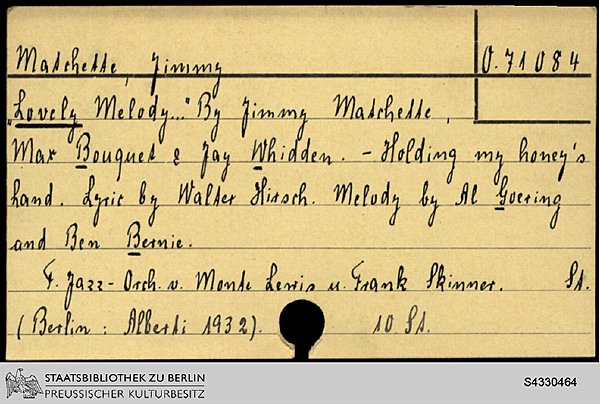 Matchette, Jimmy
O. 71084
"Lovely Melody..." By Jimmy Matchette,
Max Bouquet & Jay Whidden. - Holding my honey's
hand. Lyric by Walter Hirsch. Melody by Al Goering
and Ben Bernie.
F. Jazz-Orch. v. Monte Lewis u. Frank Skinner. St.
(Berlin: Alberti 1932). 10 St.
STAATSBIBLIOTHEK ZU BERLIN
PREUSSISCHER KULTURBESITZ
S4330464